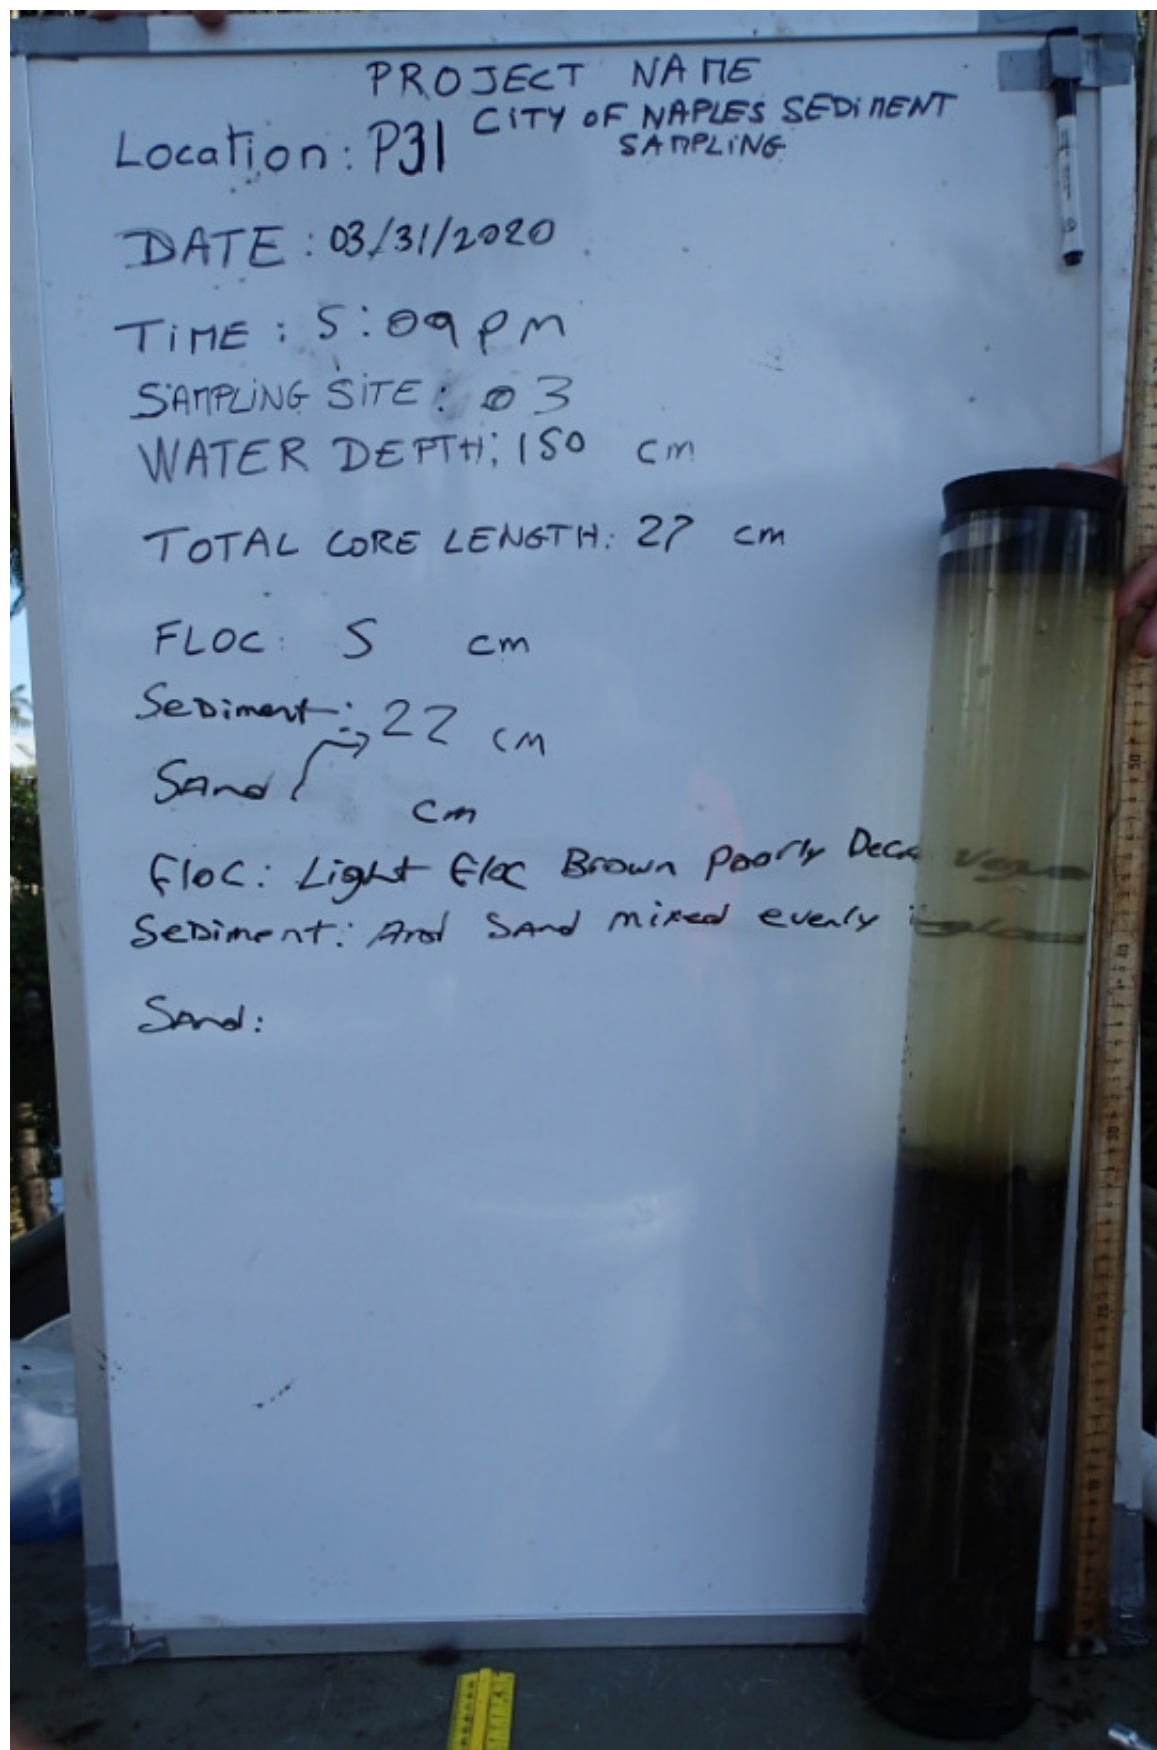 PROJECT NAME
CITY OF NAPLES SEDIMENT
SAMPLING
Location: P31
DATE: 03/31/2020
TIME: 5:09 pm
SAMPLING SITE: 03
WATER DEPTH: 150 cm
TOTAL CORE LENGTH: 27 cm
FLOC: 5 cm
Sediment: 22 cm
Sand
cm
Floc: Light Floc Brown Poorly
Sediment: And Sand mixed evenly
Sand:
50
40
30
20
10